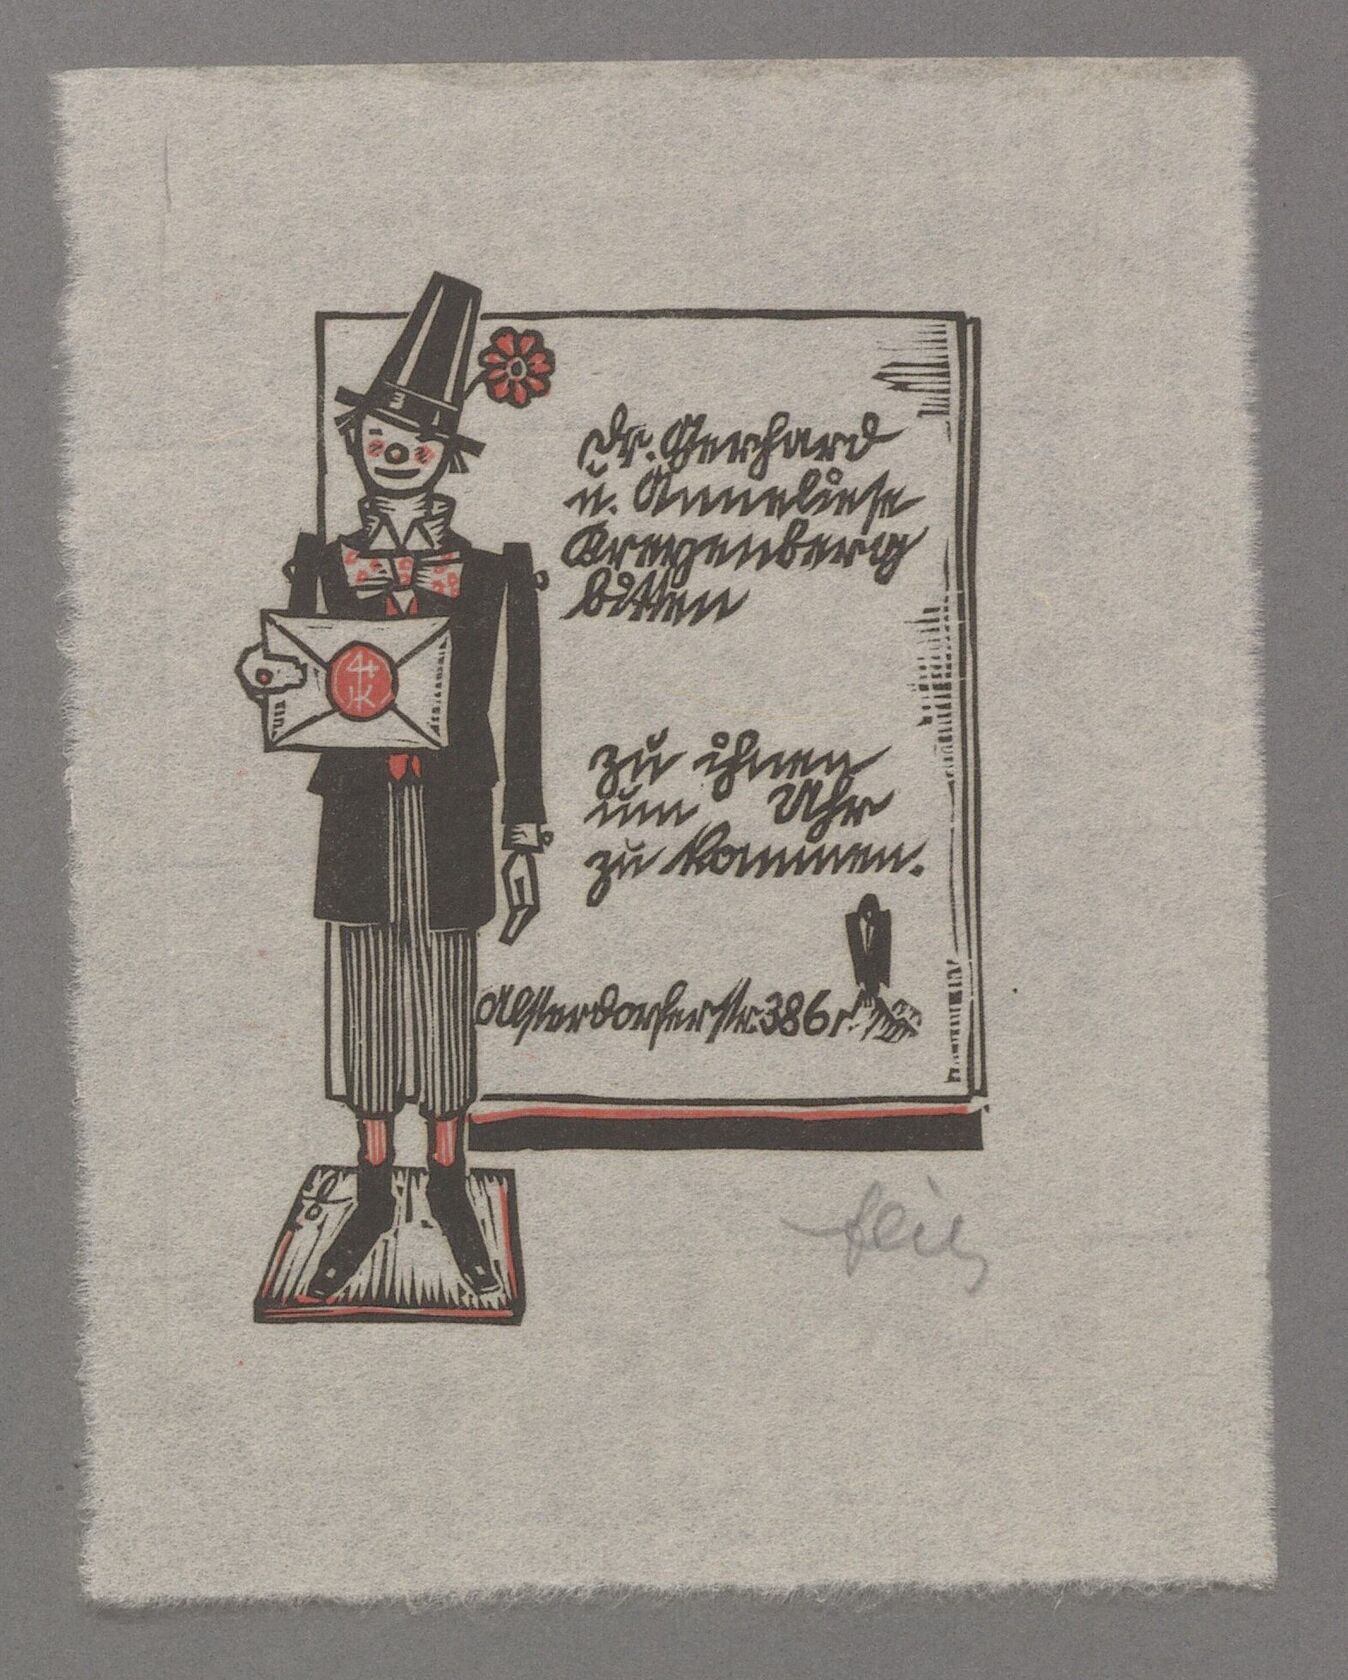 Dr. Gerhard
u. Anneliese
Kreyenberg
bitten
zu ihnen
um Uhr
zu kommen.
Alsterdorferstr. 386